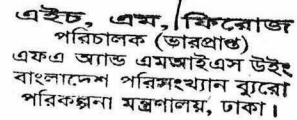 এইচ, এম, ফিরোজ
পরিচালক (ভারপ্রাপ্ত)
এফএ অ্যান্ড এমআইএস উইং
বাংলাদেশ পরিসংখ্যান ব্যুরো
পরিকল্পনা মন্ত্রণালয়, ঢাকা।